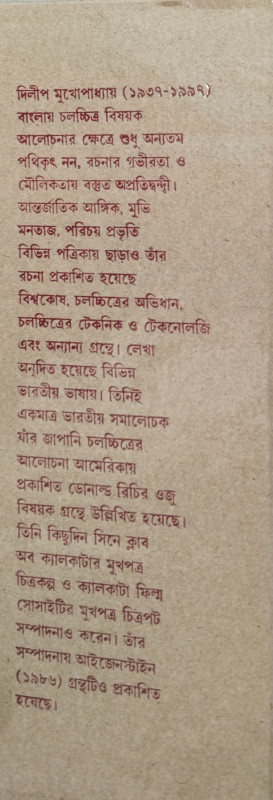 দিলীপ মুখোপাধ্যায় (১৯৩৭-১৯৯৭)
বাংলায় চলচ্চিত্র বিষয়ক
আলোচনার ক্ষেত্রে শুধু অন্যতম
পথিকৃৎ নন, রচনার গভীরতা ও
মৌলিকতায় বস্তুত অপ্রতিদ্বন্দ্বী।
আন্তর্জাতিক আঙ্গিক, মুভি
মনতাজ, পরিচয় প্রভৃতি
বিভিন্ন পত্রিকায় ছাড়াও তাঁর
রচনা প্রকাশিত হয়েছে
বিশ্বকোষ, চলচ্চিত্রের অভিধান,
চলচ্চিত্রের টেকনিক ও টেকনোলজি
এবং অন্যান্য গ্রন্থে। লেখা
অনূদিত হয়েছে বিভিন্ন
ভারতীয় ভাষায়। তিনিই
একমাত্র ভারতীয় সমালোচক
যাঁর জাপানি চলচ্চিত্রের
আলোচনা আমেরিকায়
প্রকাশিত ডোনাল্ড রিচির ওজু
বিষয়ক গ্রন্থে উল্লিখিত হয়েছে।
তিনি কিছুদিন সিনে ক্লাব
অব ক্যালকাটার মুখপত্র
চিত্রকল্প ও ক্যালকাটা ফিল্ম
সোসাইটির মুখপত্র চিত্রপট
সম্পাদনাও করেন। তাঁর
সম্পাদনায় আইজেনস্টাইন
(১৯৮৬) গ্রন্থটিও প্রকাশিত
হয়েছে।